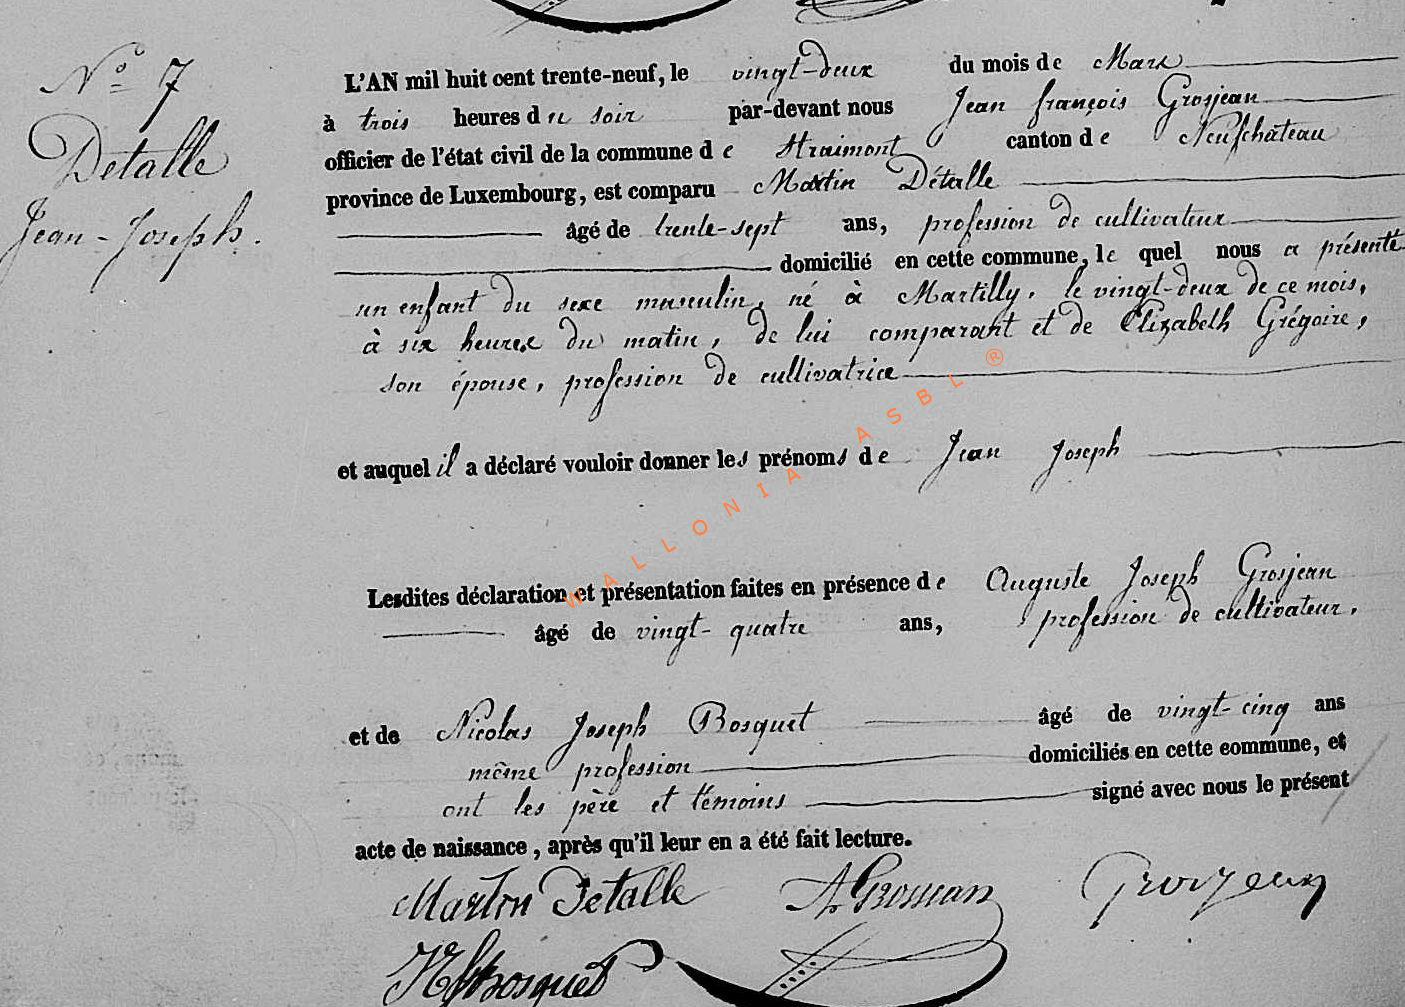 N° 7
Detalle
Jean-Joseph.
L'AN mil huit cent trente-neuf, le vingt-deux du mois de Mars
à trois heures du soir par-devant nous Jean françois Grosjean
officier de l'état civil de la commune de Straimont canton de Neufchâteau
province de Luxembourg, est comparu Martin Détalle
âgé de trente-sept ans, profession de cultivateur
domicilié en cette commune, le quel nous a présenté
un enfant du sexe masculin, né à Martilly, le vingt-deux de ce mois,
à six heures du matin, de lui comparant et de Elizabeth Grégoire,
son épouse, profession de cultivatrice
et auquel il a déclaré vouloir donner les prénoms de Jean Joseph
Lesdites déclaration et présentation faites en présence de Auguste Joseph Grosjean
âgé de vingt-quatre ans, profession de cultivateur,
et de Nicolas Joseph Bosquet âgé de vingt-cinq ans
même profession domiciliés en cette commune, et
ont les père et témoins signé avec nous le présent
acte de naissance, après qu'il leur en a été fait lecture.
Martin Detalle A Grosjean Grosjean
NJ Bosquet
WALLONIA ASBL ®